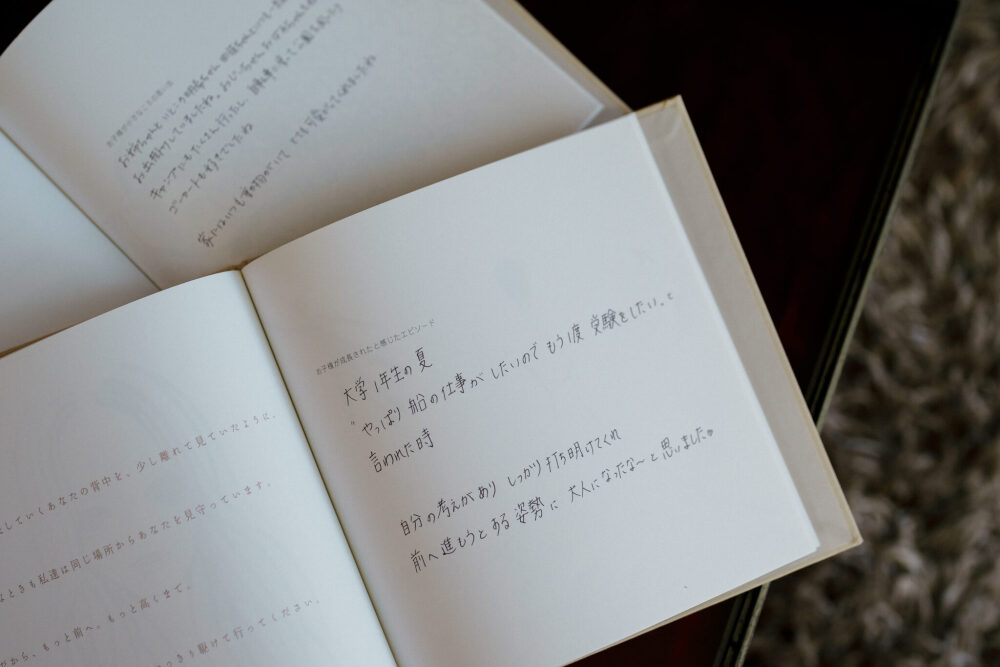 お子様が好きなことの思い出
お姉ちゃんと いとこの
お出掛けしていましたね。おじいちゃん
キャンプにもたくさん行ったし、
ゴーカートも好きでしたね
家にはいつも
お子様が成長されたと感じたエピソード
大学1年生の夏
"やっぱり 船の仕事がしたいので もう1度 受験をしたい。と
言われた時
自分の考えがあり しっかり打ち明けてくれ
前へ進もうとある姿勢に 大人になったな〜と思いました。
していくあなたの背中を、少し離れて見ていたように、
なときも私達は同じ場所からあなたを見守っています。
から、もっと前へ、もっと高くまで。
っきり駆けて行ってください。